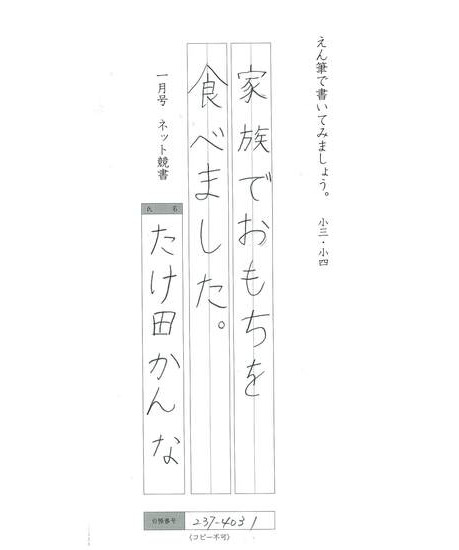 えん筆で書いてみましょう。 小三・小四
家族でおもちを
食べました。
一月号 ネット競書
氏名
たけ田かんな
237-4031
(コピー不可)